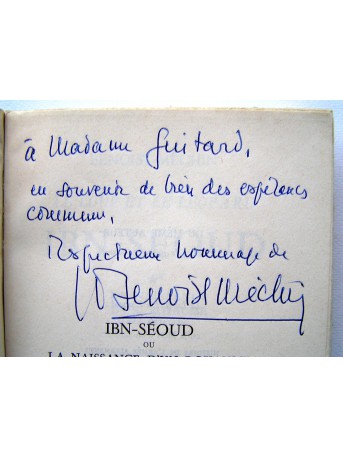 à Madame Guitard,
en souvenir de bien des espérances
communes,
Respectueux hommage de
Benoist-Méchin
IBN-SÉOUD
OU
LA NAISSANCE D'UN ROYAUME